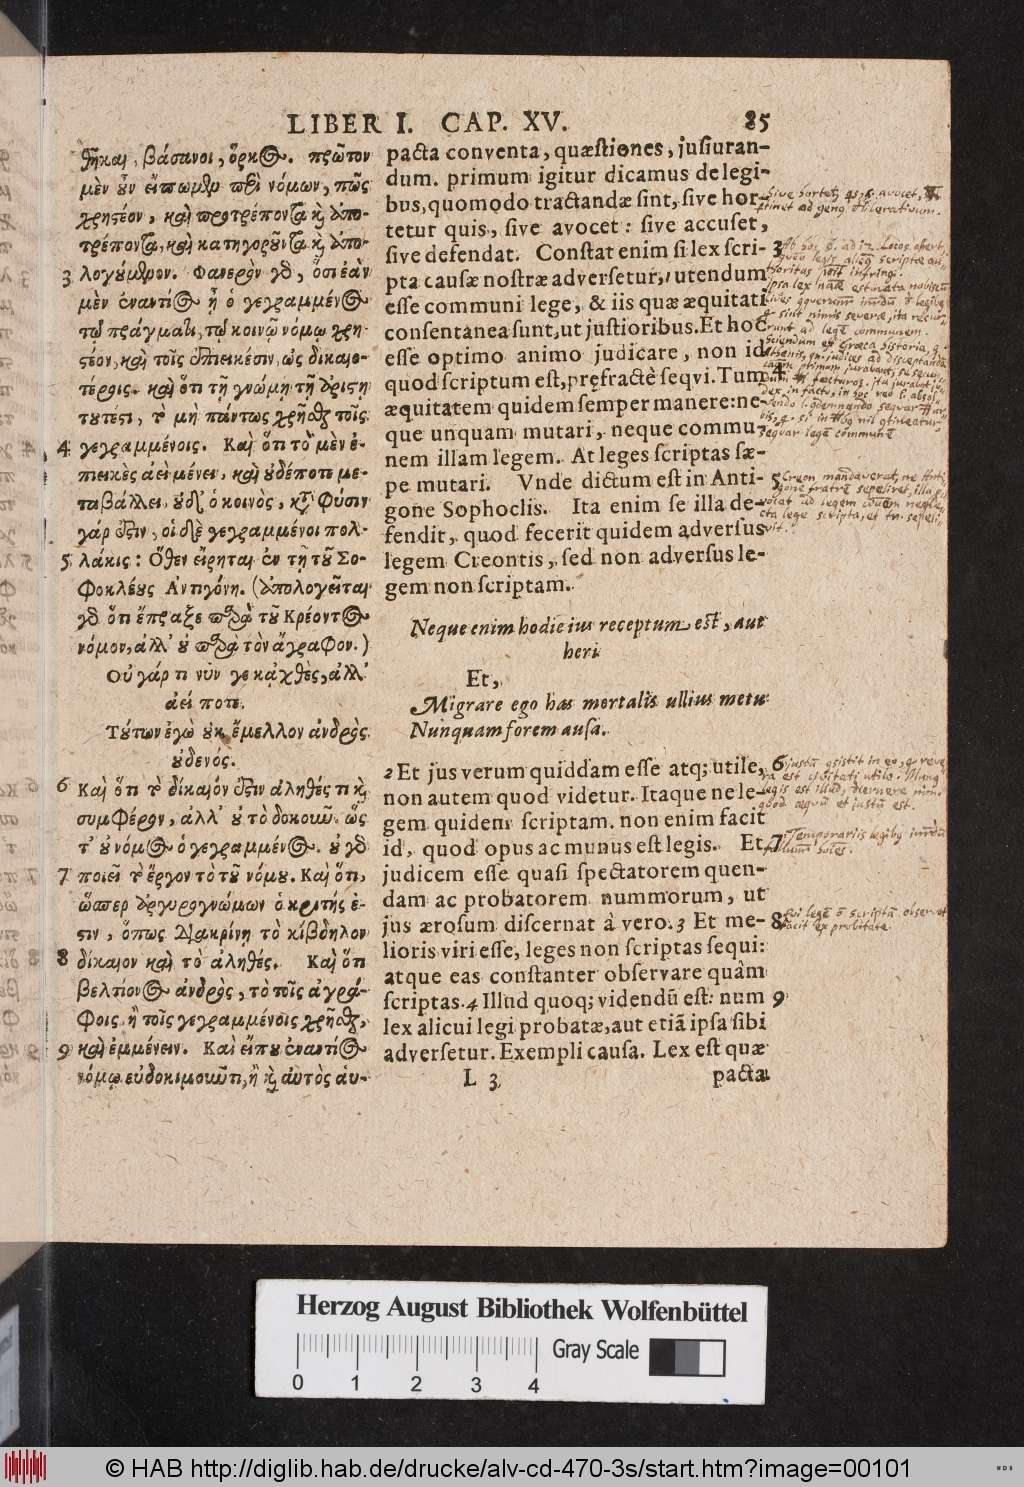 LIBER I. CAP. XV. 85
θῆκαι, βάσανοι, ὅρκος. πρῶτον
μὲν οὖν εἴπωμεν περὶ νόμων, πῶς
χρηστέον, καὶ προτρέποντα καὶ ἀπο-
τρέποντα, καὶ κατηγοροῦντα καὶ ἀπο-
3 λογούμενον. Φανερὸν γὰρ, ὅτι ἐὰν
μὲν ἐναντίος ᾖ ὁ γεγραμμένος
τῷ πράγματι, τῷ κοινῷ νόμῳ χρη-
στέον, καὶ τοῖς ἐπιεικέσιν, ὡς δικαιο-
τέροις. καὶ ὅτι τῇ γνώμῃ τῇ ἀρίστῃ
τουτέστι, τὸ μὴ πάντως χρῆσθαι τοῖς
4 γεγραμμένοις. Καὶ ὅτι τὸ μὲν ἐ-
πιεικὲς ἀεὶ μένει, καὶ οὐδέποτε με-
ταβάλλει, οὐδ' ὁ κοινὸς, κατὰ φύσιν
γάρ ἐστιν, οἱ δὲ γεγραμμένοι πολ-
5 λάκις: Ὅθεν εἴρηται ἐν τῇ τοῦ Σο-
φοκλέους Ἀντιγόνῃ. (ἀπολογεῖται
γὰρ ὅτι ἔπραξε παρὰ τοῦ Κρέοντος
νόμον, ἀλλ' οὐ παρὰ τὸν ἄγραφον.)
Οὐ γάρ τι νῦν γε κᾀχθὲς, ἀλλ'
ἀεί ποτε.
Τούτων ἐγὼ οὐκ ἔμελλον ἀνδρὸς
οὐδενός.
6 Καὶ ὅτι τὸ δίκαιόν ἐστιν ἀληθές τι καὶ
συμφέρον, ἀλλ' οὐ τὸ δοκοῦν. ὥς
τ' οὐ νόμος ὁ γεγραμμένος. οὐ γὰρ
7 ποιεῖ τὸ ἔργον τὸ τοῦ νόμου. Καὶ ὅτι,
ὥσπερ ἀργυρογνώμων ὁ κριτής ἐ-
στιν, ὅπως διακρίνῃ τὸ κίβδηλον
8 δίκαιον καὶ τὸ ἀληθές. Καὶ ὅτι
βελτίονος ἀνδρὸς, τὸ τοῖς ἀγρά-
φοις, ἢ τοῖς γεγραμμένοις χρῆσθαι,
9 καὶ ἐμμένειν. Καὶ εἴ που ἐναντίος
νόμῳ εὐδοκιμοῦντι, ἢ καὶ αὐτὸς αὑ-
pacta conventa, quæstiones, jusiuran-
dum. primum igitur dicamus de legi-
bus, quomodo tractandæ sint, sive hor-
tetur quis, sive avocet: sive accuset,
sive defendat. Constat enim si lex scri- 3
pta causæ nostræ adversetur, utendum
esse communi lege, & iis quæ æquitati
consentanea sunt, ut justioribus. Et hoc
esse optimo animo judicare, non id
quod scriptum est, præfractè seqvi. Tum 4
æquitatem quidem semper manere: ne-
que unquam mutari, neque commu-
nem illam legem. At leges scriptas sæ-
pe mutari. Vnde dictum est in Anti- 5
gone Sophoclis. Ita enim se illa de-
fendit, quod fecerit quidem adversus
legem Creontis, sed non adversus le-
gem non scriptam.
Neque enim hodie ius receptum est, aut
heri
Et,
Migrare ego has mortalis ullius metu
Nunquam forem ausa.
2 Et jus verum quiddam esse atq; utile, 6
non autem quod videtur. Itaque ne le-
gem quidem scriptam. non enim facit
id, quod opus ac munus est legis. Et 7
judicem esse quasi spectatorem quen-
dam ac probatorem nummorum, ut
jus ærosum discernat à vero. 3 Et me- 8
lioris viri esse, leges non scriptas sequi:
atque eas constanter observare quàm
scriptas. 4 Illud quoq; videndū est: num 9
lex alicui legi probatæ, aut etiā ipsa sibi
adversetur. Exempli causa. Lex est quæ
L 3 pacta
Herzog August Bibliothek Wolfenbüttel
Gray Scale
0 1 2 3 4
© HAB http://diglib.hab.de/drucke/alv-cd-470-3s/start.htm?image=00101